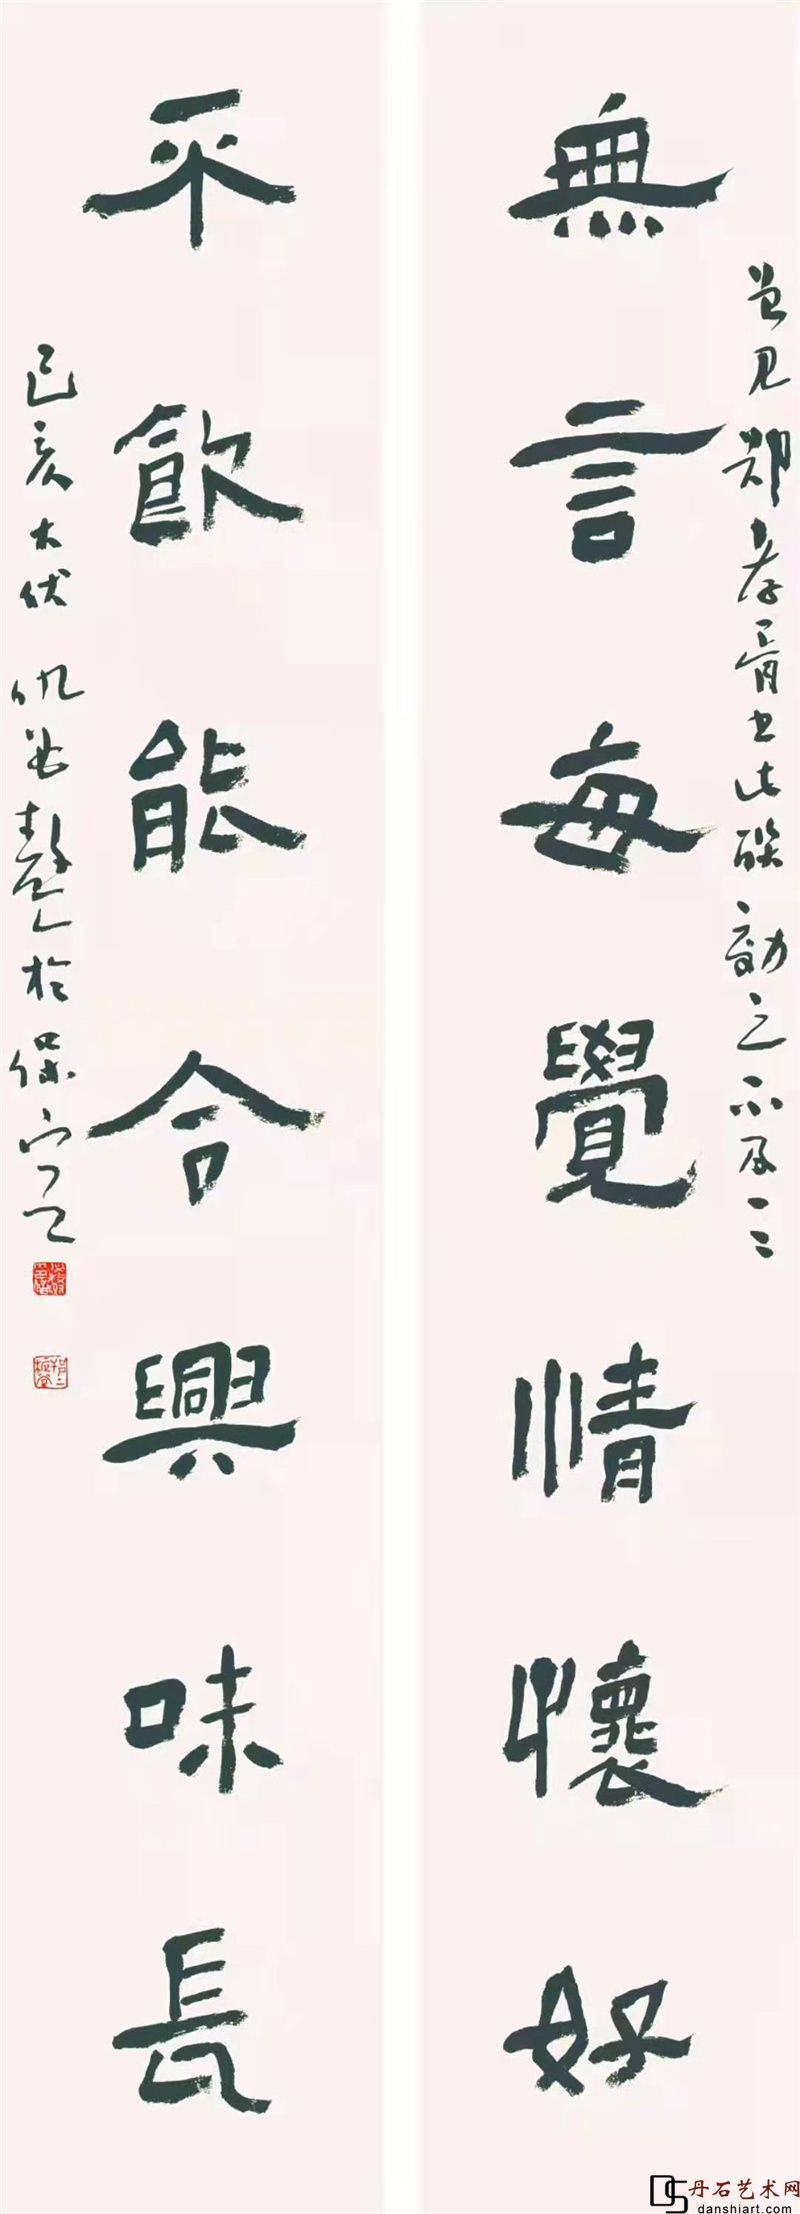 無言每覺情懷好
曾見鄭孝胥書此聯効之不及一二
不飲能令興味長
己亥大伏仇於保寧
DS丹石艺术网
danshiart.com